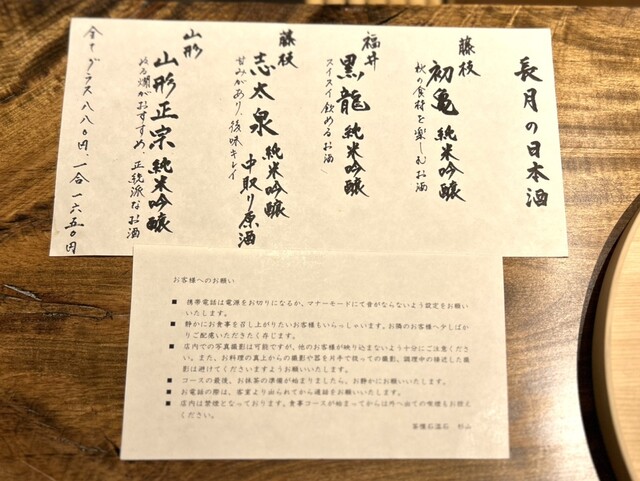 長月の日本酒
藤枝
初亀 純米吟醸
秋の食材を楽しむお酒
福井
黒龍 純米吟醸
スイスイ飲めるお酒
藤枝
志太泉 純米吟醸
中取り原酒
甘みがあり、後味キレイ
山形
山形正宗 純米吟醸
ぬる燗がおすすめ、正統派なお酒
全てグラス八八〇円、一合一六五〇円
お客様へのお願い
■ 携帯電話は電源をお切りになるか、マナーモードにて音がならないよう設定をお願い
いたします。
■ 静かにお食事を召し上がりたいお客様もいらっしゃいます。お隣のお客様へ少しばか
りご配慮いただきたく存じます。
■ 店内での写真撮影は可能ですが、他のお客様が映り込まないよう十分にご注意くださ
い。また、お料理の真上からの撮影や器を片手で扱っての撮影、調理中の接近した撮
影は避けてくださいますようお願いいたします。
■ コースの最後、お抹茶の準備が始まりましたら、お静かにお願いいたします。
■ お電話の際は、客室より出られてから通話をお願いいたします。
■ 店内は禁煙となっております。食事コースが始まってからは外へ出ての喫煙もお控え
ください。
茶懐石温石 杉山